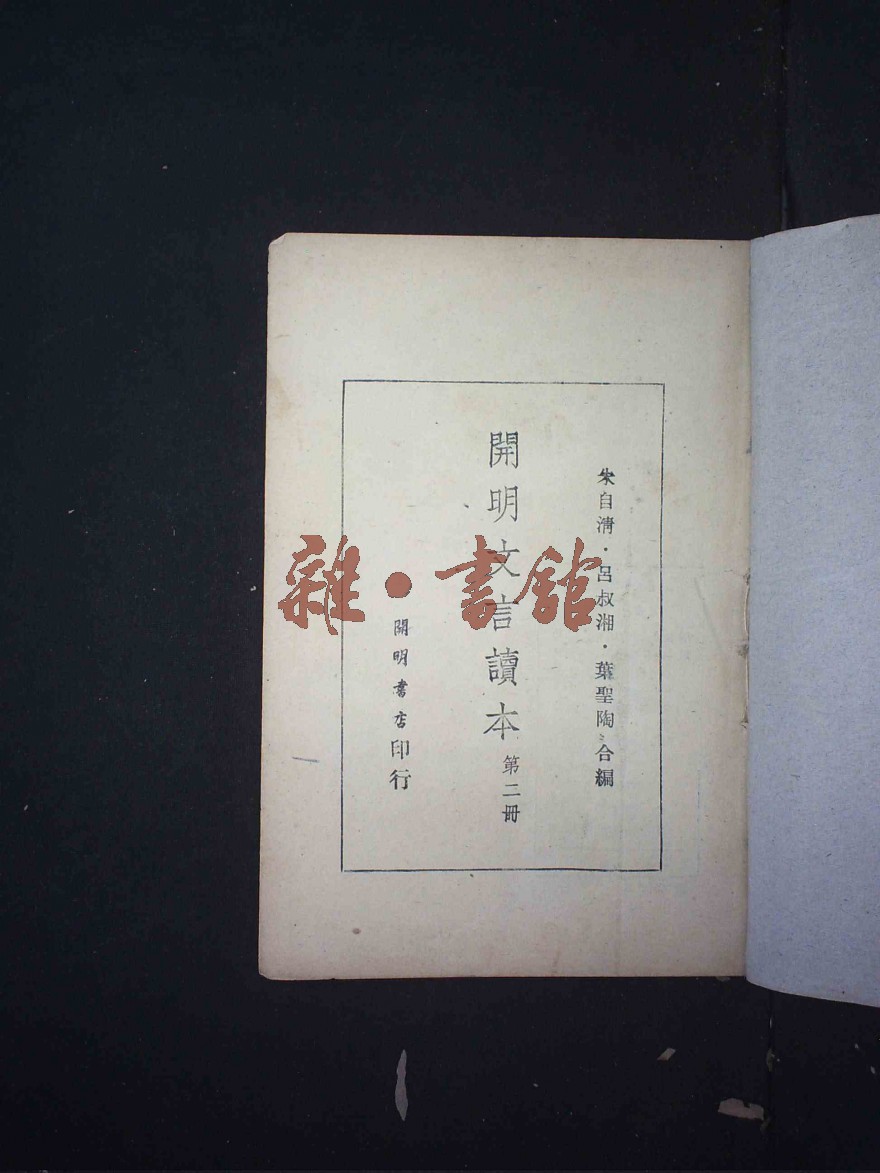 朱自清·呂叔湘·葉聖陶合編
開明文言讀本 第二冊
開明書店印行
雜·書館